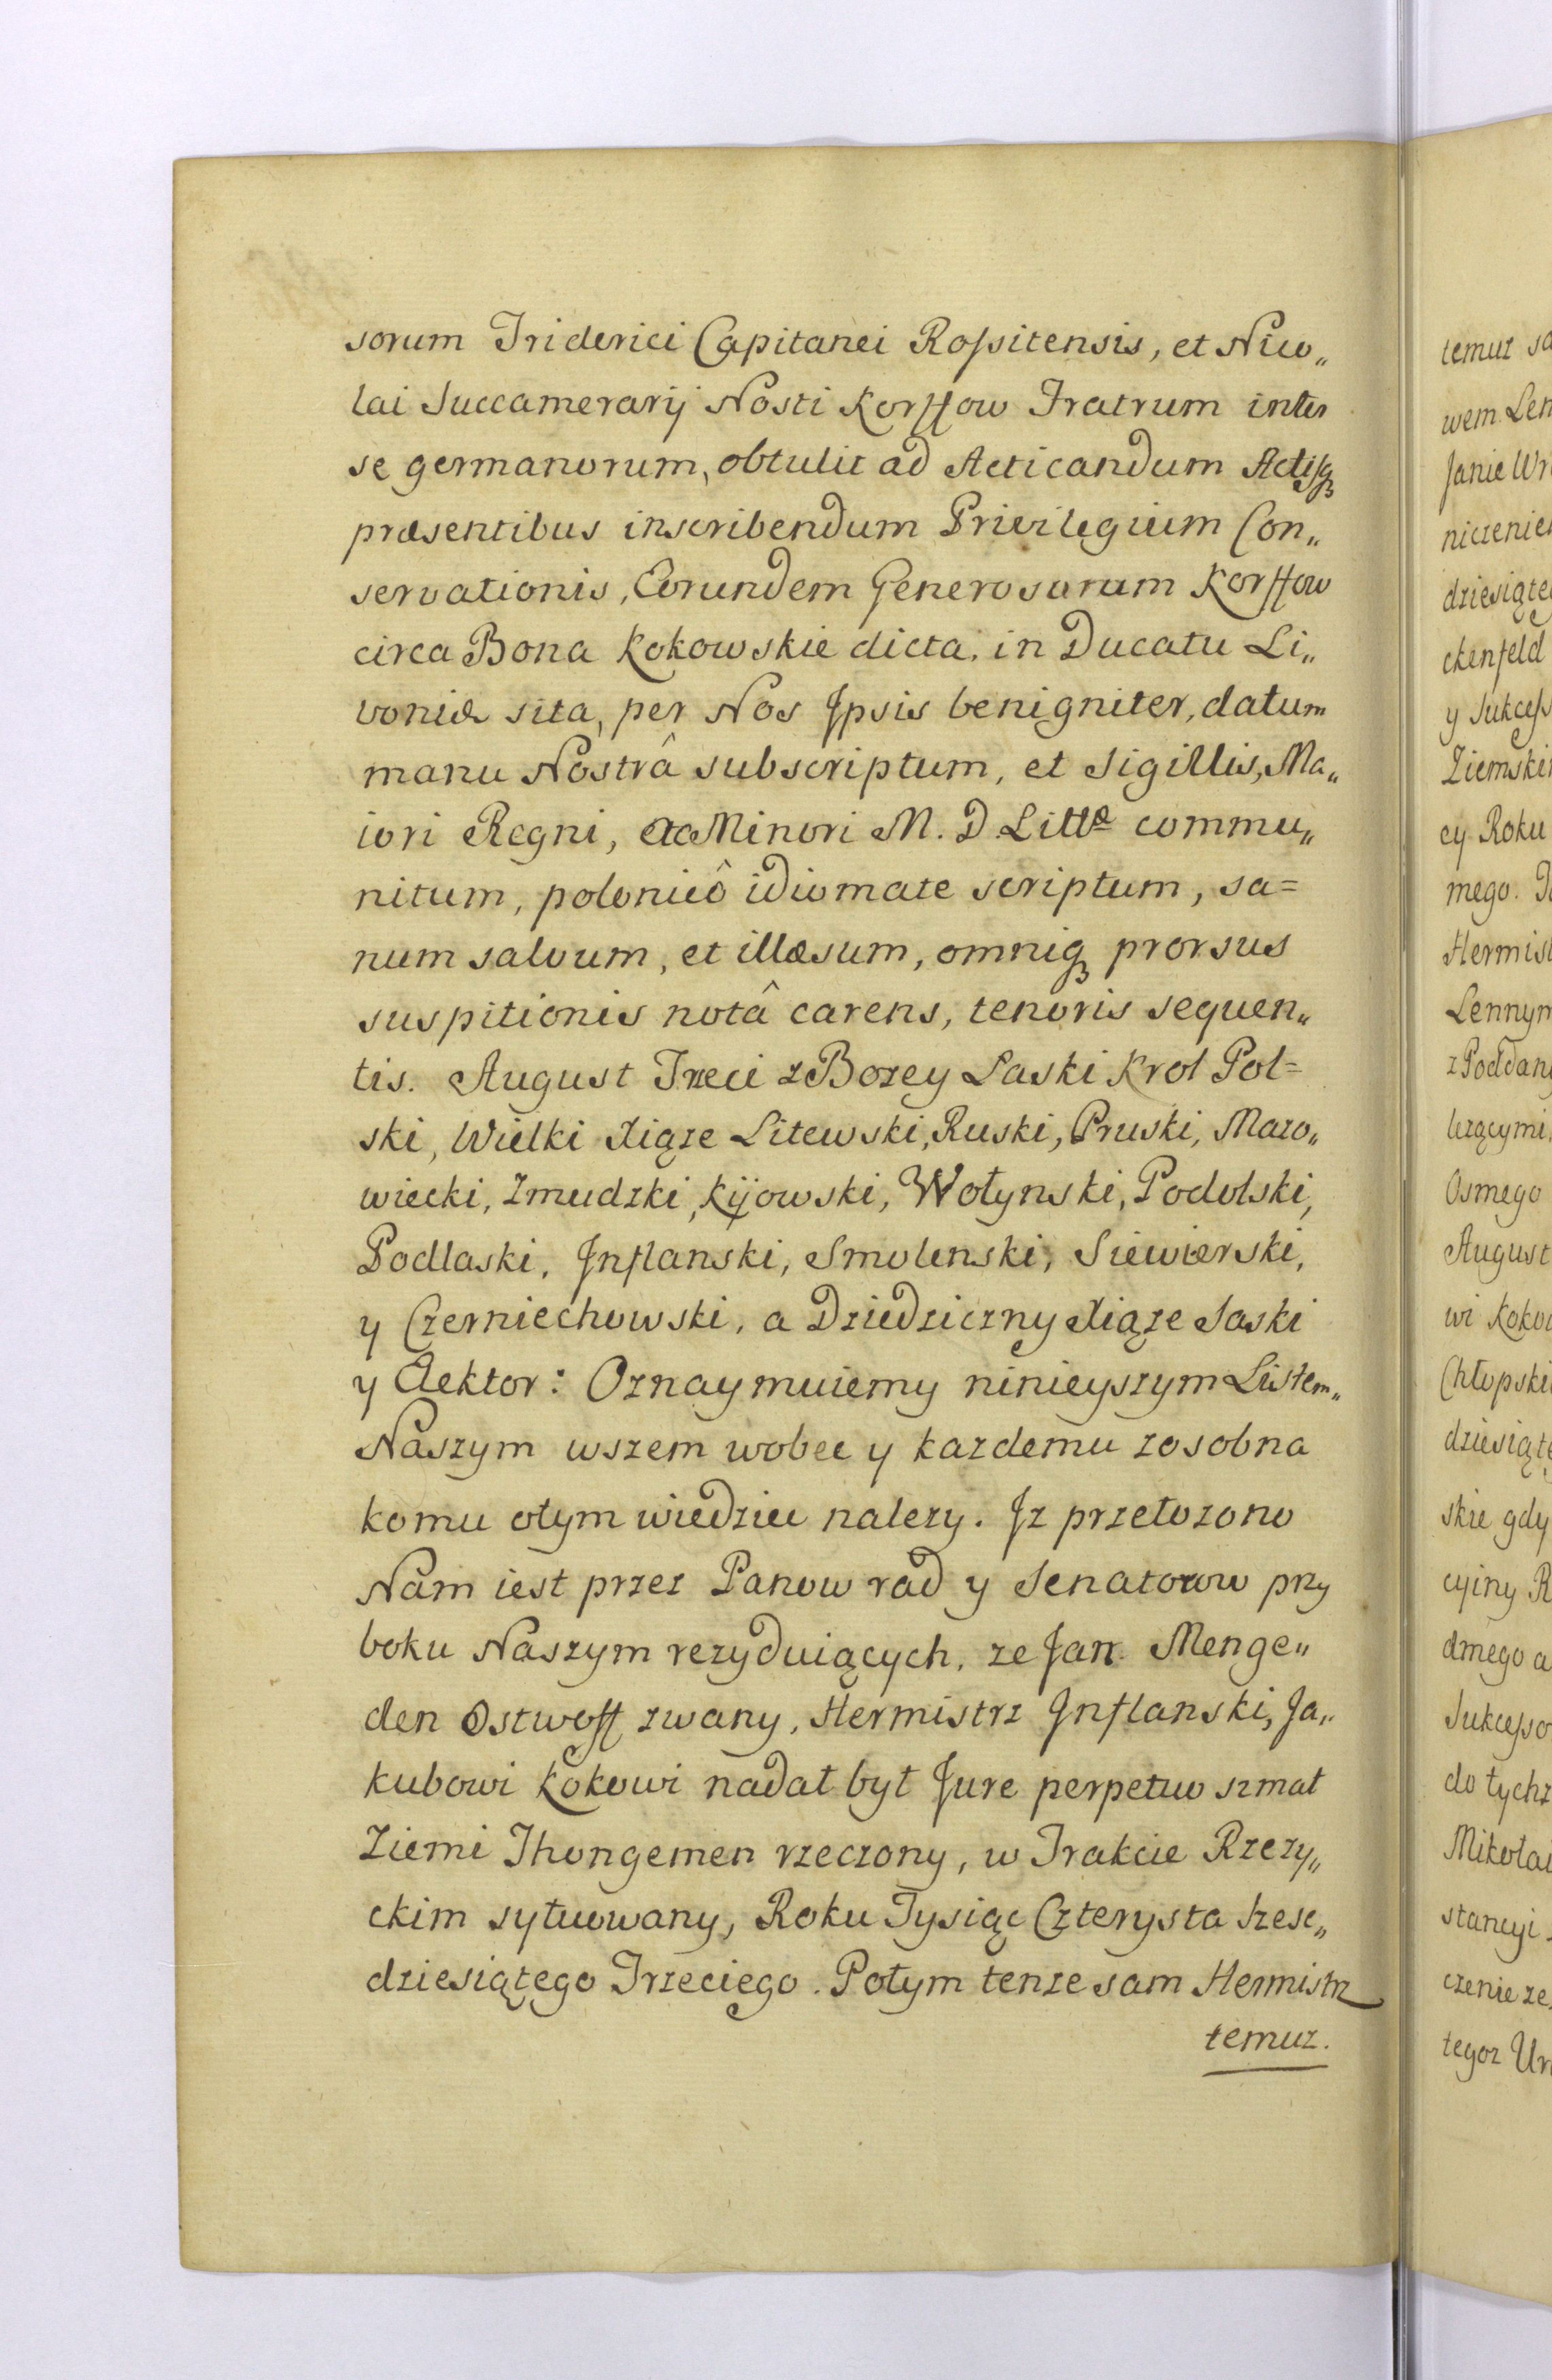 sorum Friderici Capitanei Rossitensis, et Nico„
lai Succamerarij Nosti Korffow Fratrum inter
se germanorum, obtulit ad Acticandum Actisq
præsentibus inscribendum Privilegium Con„
servationis, Eorundem Generosorum Korffow
circa Bona Kokowskie dicta, in Ducatu Li„
voniæ sita, per Nos Jpsis benigniter, datum
manu Nostrâ subscriptum, et Sigillis, Ma„
iori Regni, ac Minori M. D. Littæ commu„
nitum, polonicô idiomate scriptum, sa=
num salvum, et illæsum, omniq prorsus
suspitionis notâ carens, tenoris sequen„
tis. August Trzeci z Bozey Laski Krol Pol=
ski, Wielki Xiąze Litewski, Ruski, Pruski, Mazo„
wiecki, Zmudzki, Kijowski, Wołynski, Podolski,
Podlaski, Jnflanski, Smolenski, Siewierski,
y Czerniechowski, a Dziedziczny Xiąze Saski
y Elektor: Oznaymuiemy ninieyszym Listem„
Naszym wszem wobec y kazdemu zosobna
komu otym wiedziec nalezy. Jz przełozono
Nam iest przez Panow rad y Senatorow przy
boku Naszym rezyduiących, ze Jan Menge„
den Ostwoff zwany, Hermistrz Jnflanski, Ja„
kubowi Kokowi nadał był Jure perpetuo szmat
Ziemi Thongemen rzeczony, w Trakcie Rzezy„
ckim sytuowany, Roku Tysiąc Czterysta Szesc„
dziesiątego Trzeciego. Potym tenze sam Hermistrz
temuz.
temuz sa
wem Len
Janie Wr
niczenie
dziesiąte
ckenfeld
y Sukcess
Ziemski
cy Roku
mego.
Hermist
Lennym
z Poddany
lezącymi
Osmego
August
wi Koko
Chłopski
dziesiąte
skie gdy
cyiny R
dmego a
Sukcesso
do tychz
Mikołai
stancyi
czenie ze
tegoz Ur